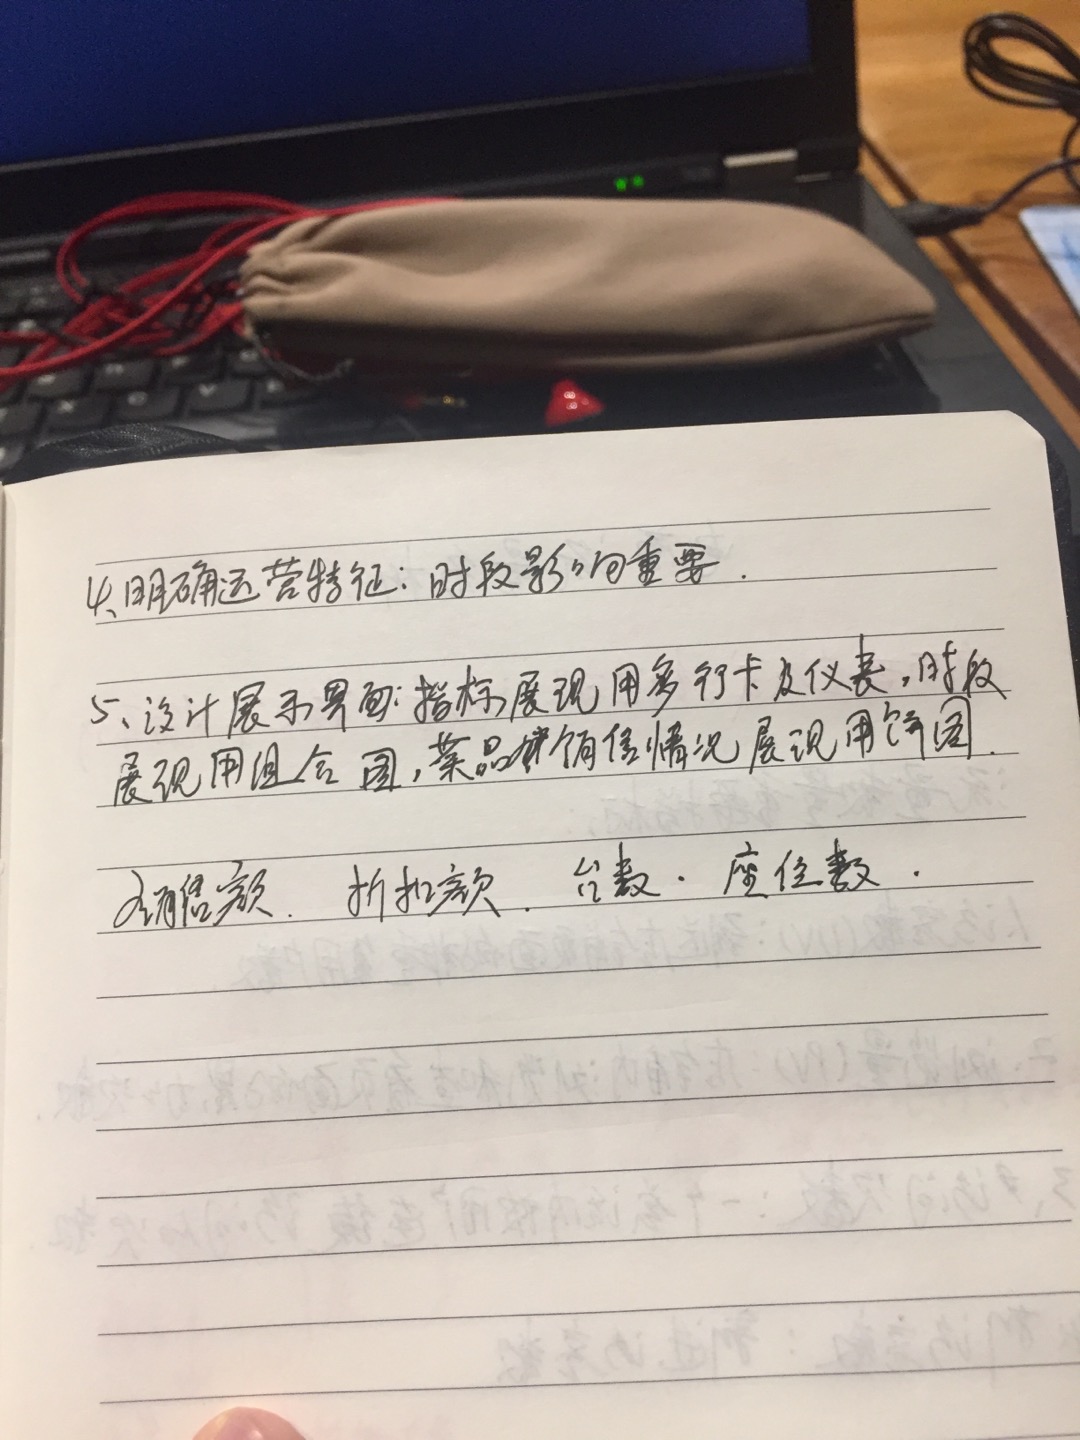 4、明确运营特征：时段影响重要.
5、设计展示界面：指标展现用多行卡及仪表，时段
展现用组合图，菜品销售情况展现用饼图.
销售额. 折扣额. 台数. 座位数.